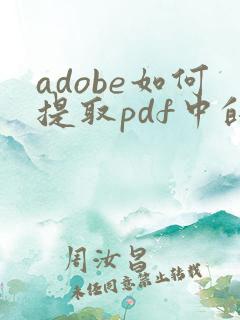 adobe如何
提取pdf中的
周汝昌
未经同意禁止转载